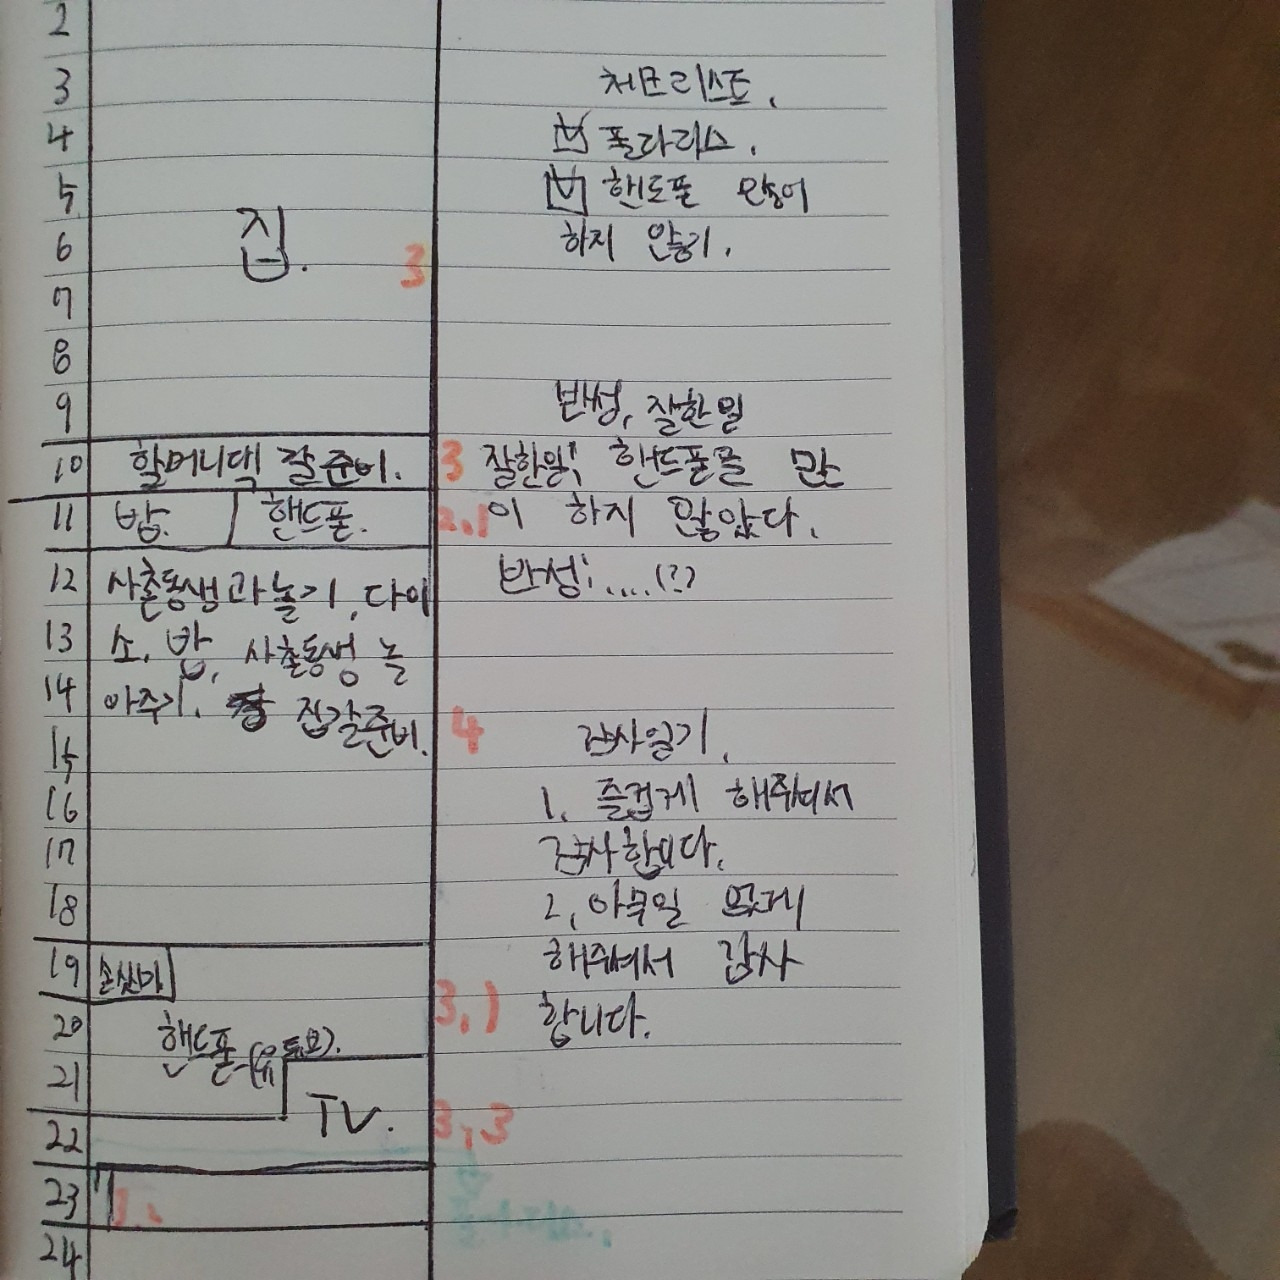 2
3
4
5
6
7
8
9
10
11
12
13
14
15
16
17
18
19
20
21
22
23
24
집.
3
할머니댁 갈준비.
3
밥.
핸드폰.
2,1
사촌동생과놀기, 다이
소, 밥, 사촌동생 놀
아주기. 집갈준비.
4
손씻기
핸드폰(유튜브).
3,1
TV.
3,3
체크리스트.
폴라리스.
핸드폰 많이
하지 않기.
반성, 잘한일
잘한일: 핸드폰을 많
이 하지 않았다.
반성:....(?)
감사일기.
1. 즐겁게 해주셔서
감사합니다.
2, 아무일 없게
해주셔서 감사
합니다.